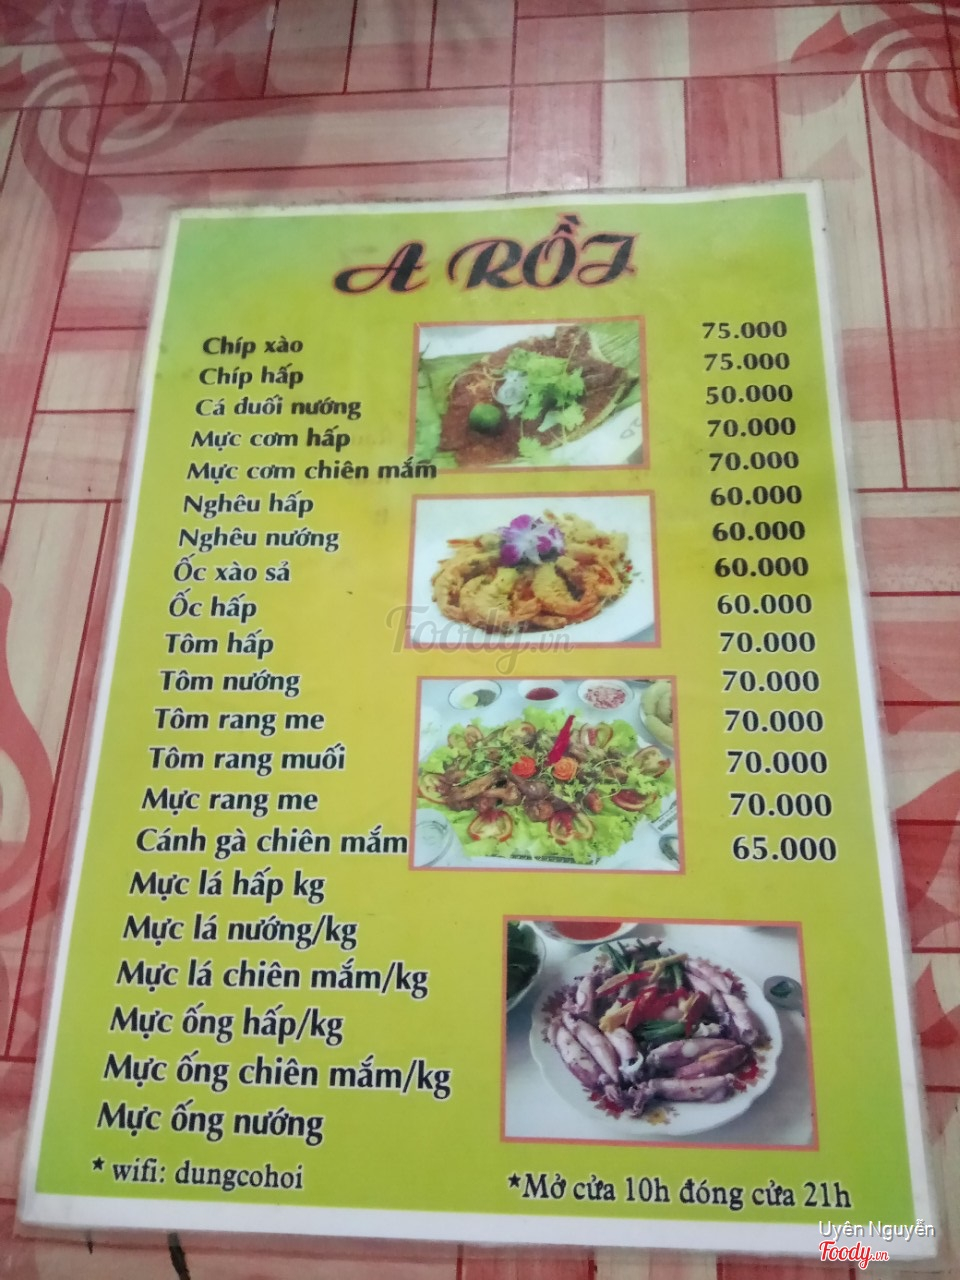 A RỒI
Chíp xào 75.000
Chíp hấp 75.000
Cá đuối nướng 50.000
Mực cơm hấp 70.000
Mực cơm chiên mắm 70.000
Nghêu hấp 60.000
Nghêu nướng 60.000
Ốc xào sả 60.000
Ốc hấp 60.000
Tôm hấp 70.000
Tôm nướng 70.000
Tôm rang me 70.000
Tôm rang muối 70.000
Mực rang me 70.000
Cánh gà chiên mắm 65.000
Mực lá hấp kg
Mực lá nướng/kg
Mực lá chiên mắm/kg
Mực ống hấp/kg
Mực ống chiên mắm/kg
Mực ống nướng
* wifi: dungcohoi
*Mở cửa 10h đóng cửa 21h
Foody.vn
Uyên Nguyễn
Foody.vn